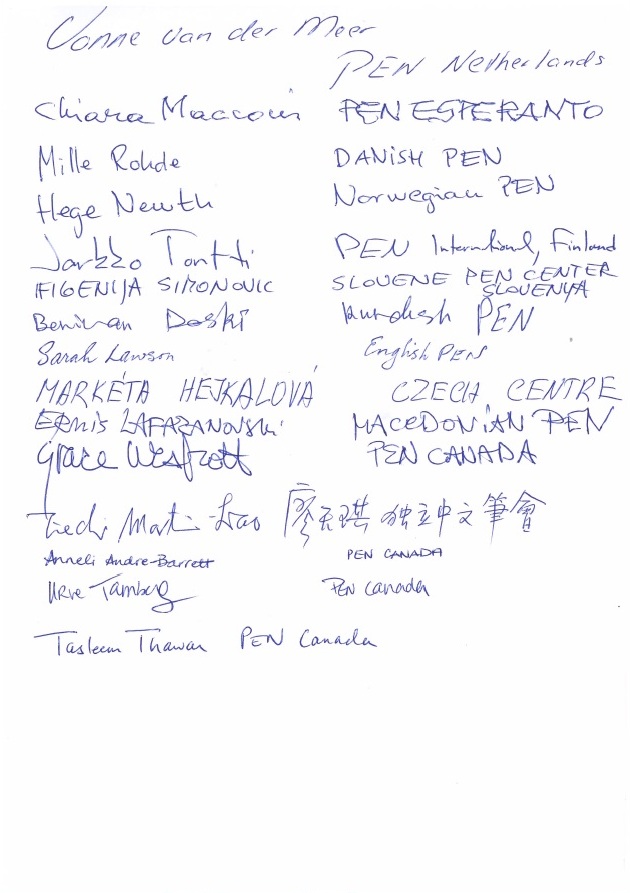 Vonne van der Meer
PEN Netherlands
Chiara Macconi PEN ESPERANTO
Mille Rohde DANISH PEN
Hege Newth Norwegian PEN
Jarkko Tontti PEN International, Finland
IFIGENIJA SIMONOVIC SLOVENE PEN CENTER
SLOVENIJA
Berivan Doski Kurdish PEN
Sarah Lawson English PEN
MARKÉTA HEJKALOVÁ CZECH CENTRE
ERMIS LAFAZANOVSKI MACEDONIAN PEN
Grace Westcott PEN CANADA
Tienchi Martin-Liao 廖天琪 独立中文筆會
Anneli Andre-Barrett PEN CANADA
Urve Tamberg PEN Canada
Tasleem Thawar PEN Canada